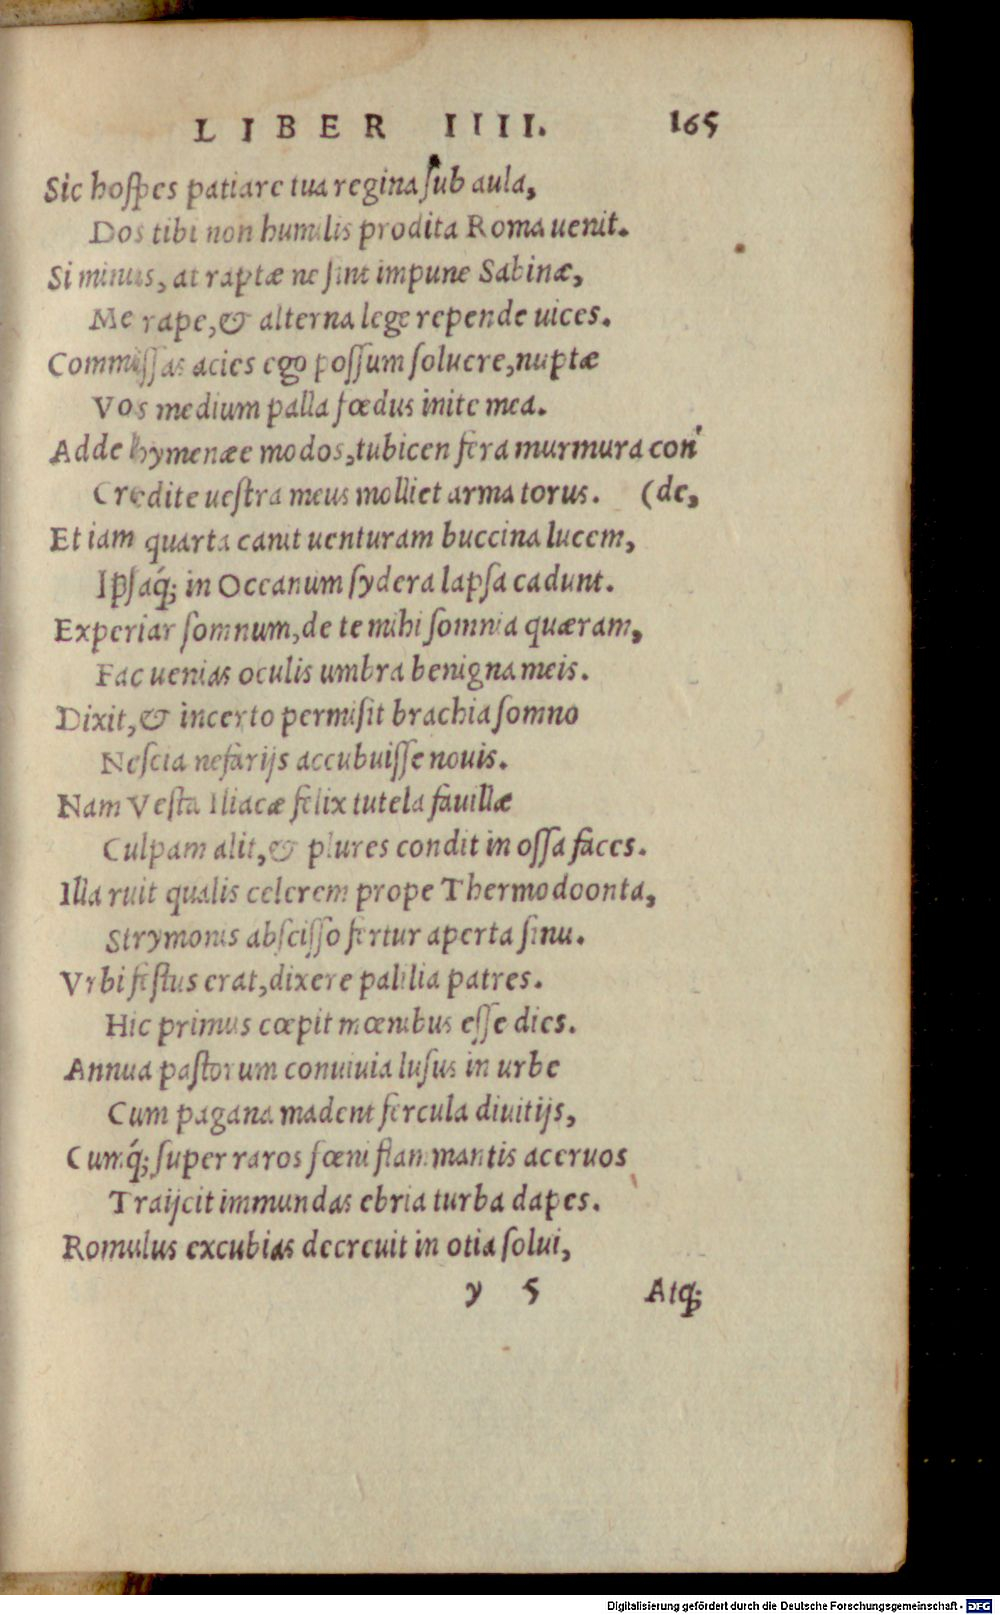 LIBER IIII. 165
Sic hoſpes patiare tua regina ſub aula,
Dos tibi non humilis prodita Roma uenit.
Si minus, at raptæ ne ſint impune Sabinæ,
Me rape, & alterna lege repende uices.
Commiſſas acies ego poſſum ſoluere, nuptæ
Vos medium palla fœdus inite mea.
Adde hymenæe modos, tubicen fera murmura con
Credite ueſtra meus molliet arma torus. (de,
Et iam quarta canit uenturam buccina lucem,
Ipſaq́; in Oceanum ſydera lapſa cadunt.
Experiar ſomnum, de te mihi ſomnia quæram,
Fac uenias oculis umbra benigna meis.
Dixit, & incerto permiſit brachia ſomno
Neſcia nefarijs accubuiſſe nouis.
Nam Veſta Iliacæ felix tutela fauillæ
Culpam alit, & plures condit in oſſa faces.
Illa ruit qualis celerem prope Thermodoonta,
Strymonis abſciſſo fertur aperta ſinu.
Vrbi feſtus erat, dixere palilia patres.
Hic primus cœpit mœnibus eſſe dies.
Annua paſtorum conuiuia luſus in urbe
Cum pagana madent fercula diuitijs,
Cumq́; ſuper raros fœni flammantis aceruos
Traijcit immundas ebria turba dapes.
Romulus excubias decreuit in otia ſolui,
y 5 Atq;
Digitalisierung gefördert durch die Deutsche Forschungsgemeinschaft - DFG